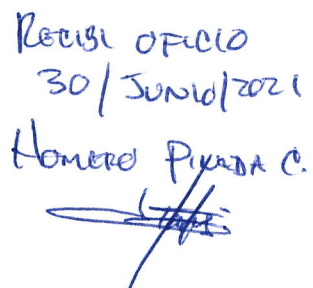 Recibi oficio
30/Junio/2021
Homero Pineda C.